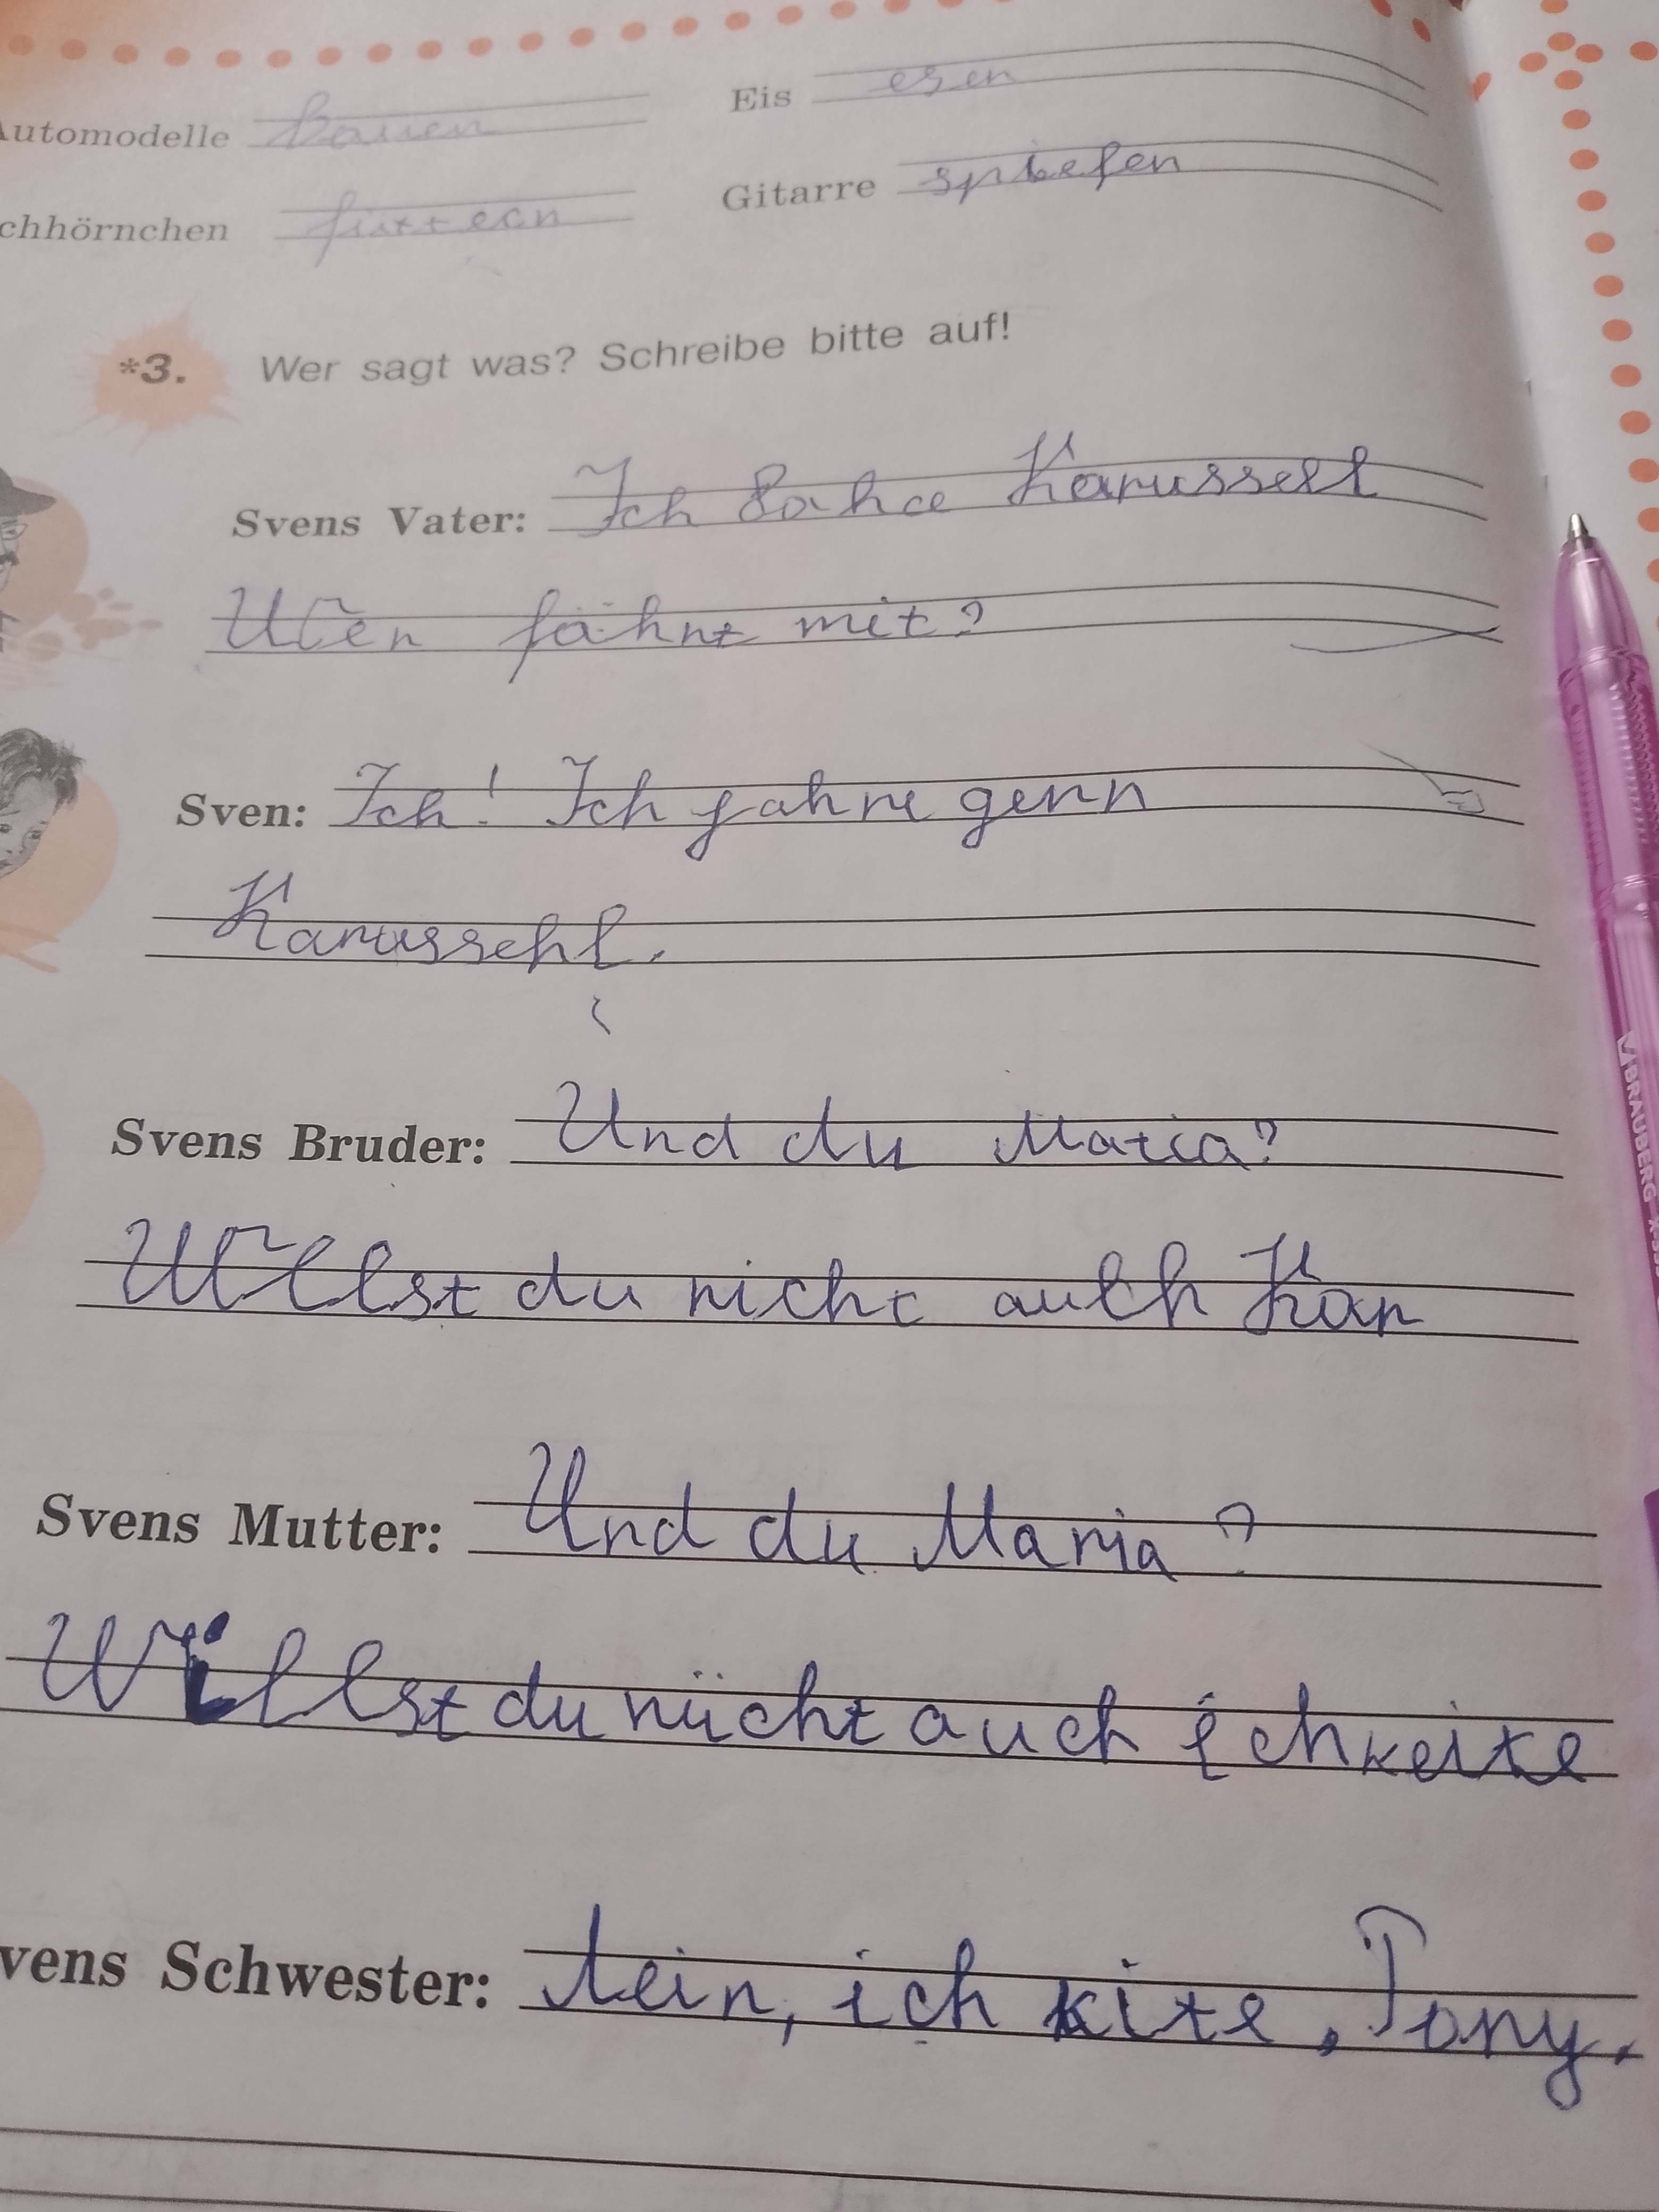 Automodelle bauen Eis esen
chhörnchen füttern Gitarre spielen
*3. Wer sagt was? Schreibe bitte auf!
Svens Vater: Ich fahre Karussell
Wer fährt mit?
Sven: Ich! Ich fahre gern
Karussehl.
Svens Bruder: Und du Maria?
Willst du nicht auch Kar
Svens Mutter: Und du Maria?
Willst du nücht auch
vens Schwester: Nein, ich kite, Pony.
BRAUBERG